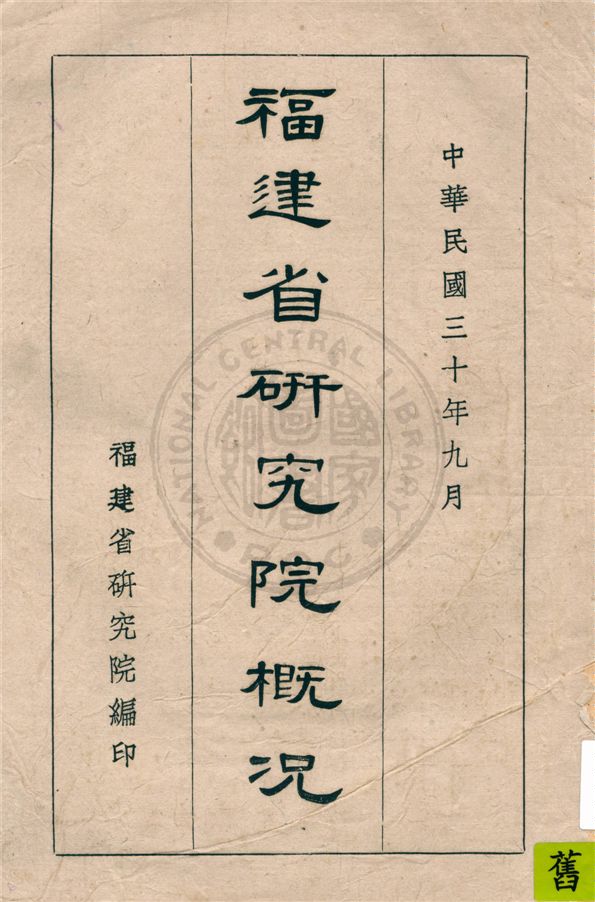 中華民國三十年九月
福建省研究院概況
福建省研究院編印
NATIONAL CENTRAL LIBRARY
舊